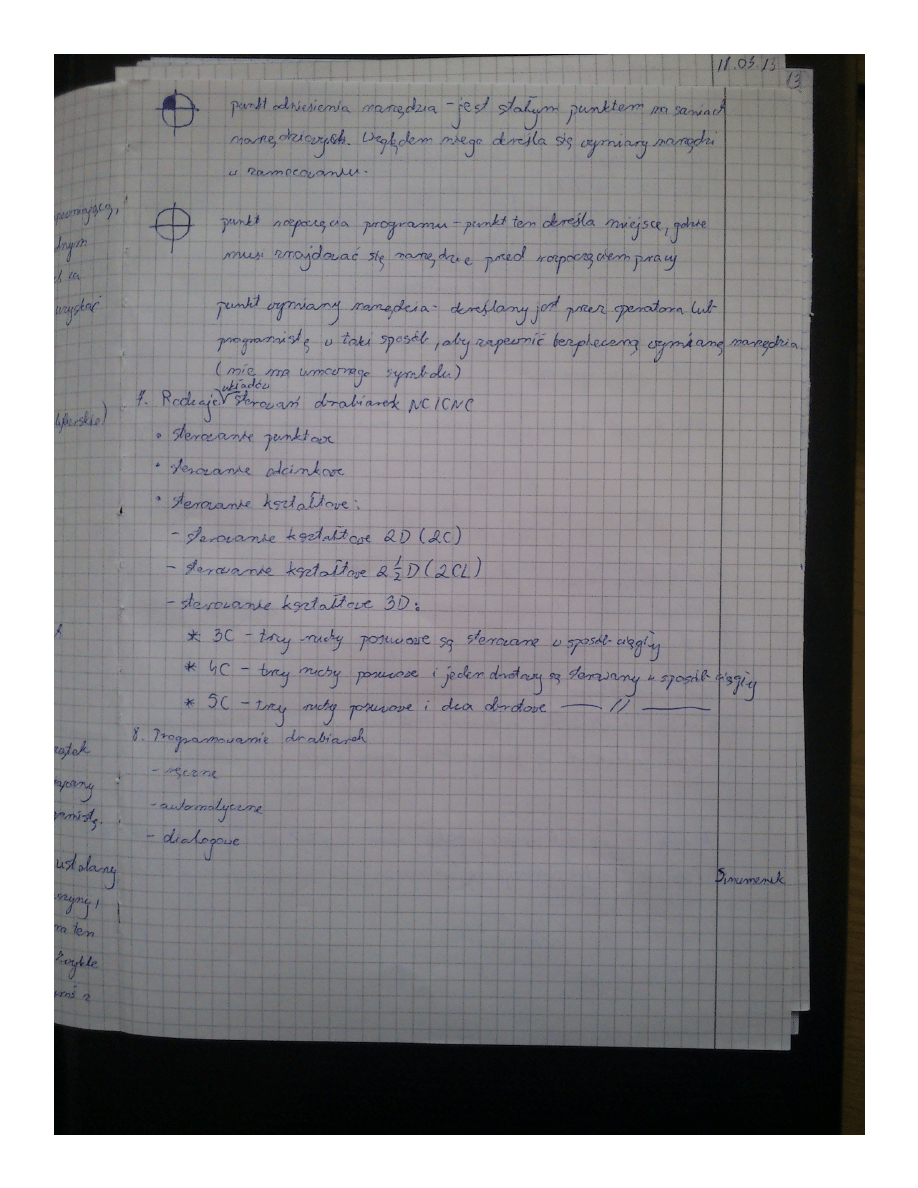 18.03.13
13
punkt odniesienia narzędzia - jest stałym punktem na saniach
narzędziowych. Względem niego określa się wymiary narzędzi
w zamocowaniu.
punkt rozpoczęcia programu - punkt ten określa miejsce, gdzie
musi znajdować się narzędzie przed rozpoczęciem pracy
punkt wymiany narzędzia - określany jest przez operatora lub
programistę w taki sposób, aby zapewnić bezpieczną wymianę narzędzia
(nie ma umownego symbolu)
układów
7. Rodzaje √ sterowań obrabiarek NC/CNC
• sterowanie punktowe
• sterowanie odcinkowe
• sterowanie kształtowe:
- sterowanie kształtowe 2D (2C)
- sterowanie kształtowe 2 1/2 D (2CL)
- sterowanie kształtowe 3D:
* 3C - trzy ruchy posuwowe są sterowane w sposób ciągły
* 4C - trzy ruchy posuwowe i jeden obrotowy są sterowany w sposób ciągły
* 5C - trzy ruchy posuwowe i dwa obrotowe —— // ——
8. Programowanie obrabiarek
- ręczne
- automatyczne
- dialogowe
dnym
ustalany
na ten